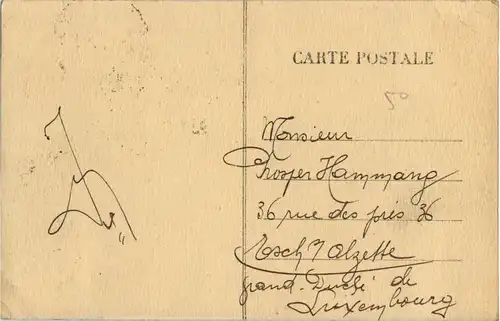 CARTE POSTALE
50
Monsieur
Prosper Hammang
36 rue des prés 36
Esch s/ Alzette
grand-Duché de
Luxembourg